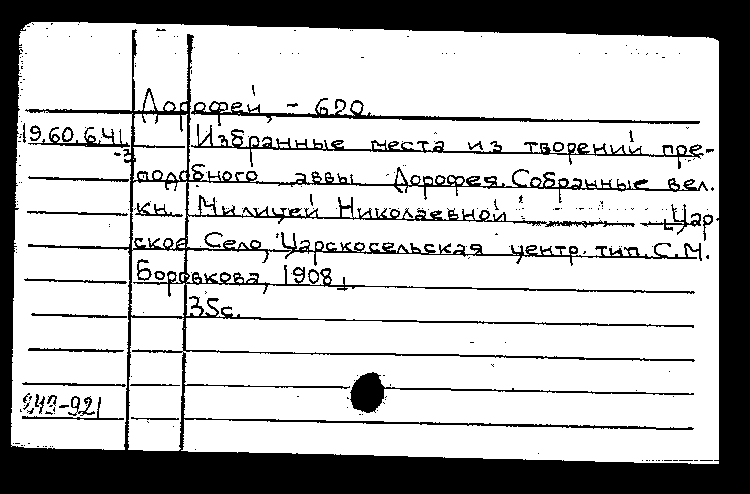 Дорофей, - 620.
19.60.6.41
-3
Избранные места из творений пре-
подобного аввы Дорофея. Собранные вел.
кн. Милицей Николаевной Цар-
ское Село, Царскосельская центр. тип. С.М.
Боровкова, 1908.
35с.
249-921